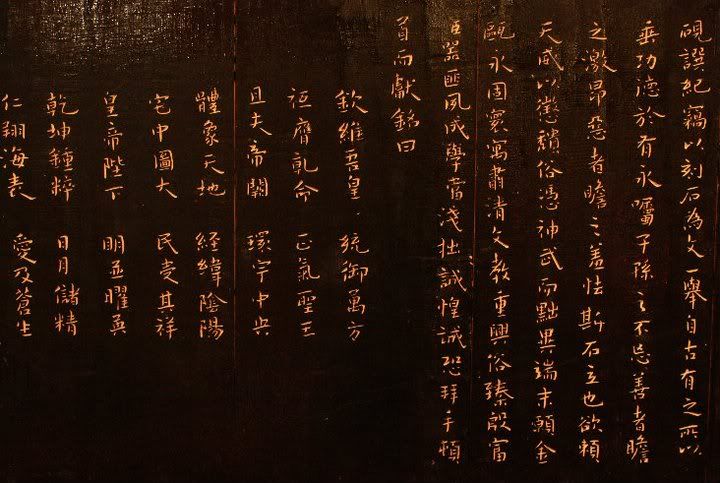 硯譔紀竊以刻石為文一舉自古有之所以
垂功德於有永囑子孫之不忘善者瞻
之激昂惡者瞻之羞怯斯石立也欲賴
天威以懲頹俗憑神武而黜異端末願金
甌永固寰寓肅清文教重興俗臻殷富
臣器匪夙成學當淺拙誠惶誠恐拜手頓
首而獻銘曰
欽維吾皇 統御萬方
誕膺乾命 正氣聖王
且夫帝闕 環宇中央
體象天地 經緯陰陽
宅中圖大 民受其祥
皇帝陛下 明並曜英
乾坤鍾粹 日月儲精
仁翔海表 愛及蒼生